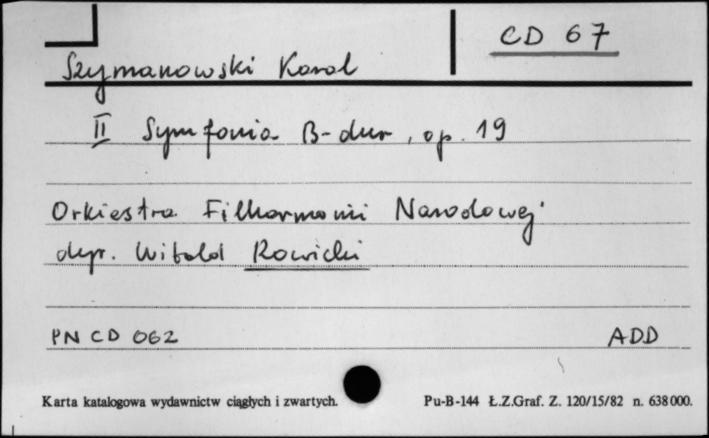 CD 67
Szymanowski Karol
II Symfonia B-dur, op. 19
Orkiestra Filharmonii Narodowej
dyr. Witold Rowicki
PN CD 062 ADD
Karta katalogowa wydawnictw ciągłych i zwartych. Pu-B-144 Ł.Z.Graf. Z. 120/15/82 n. 638000.